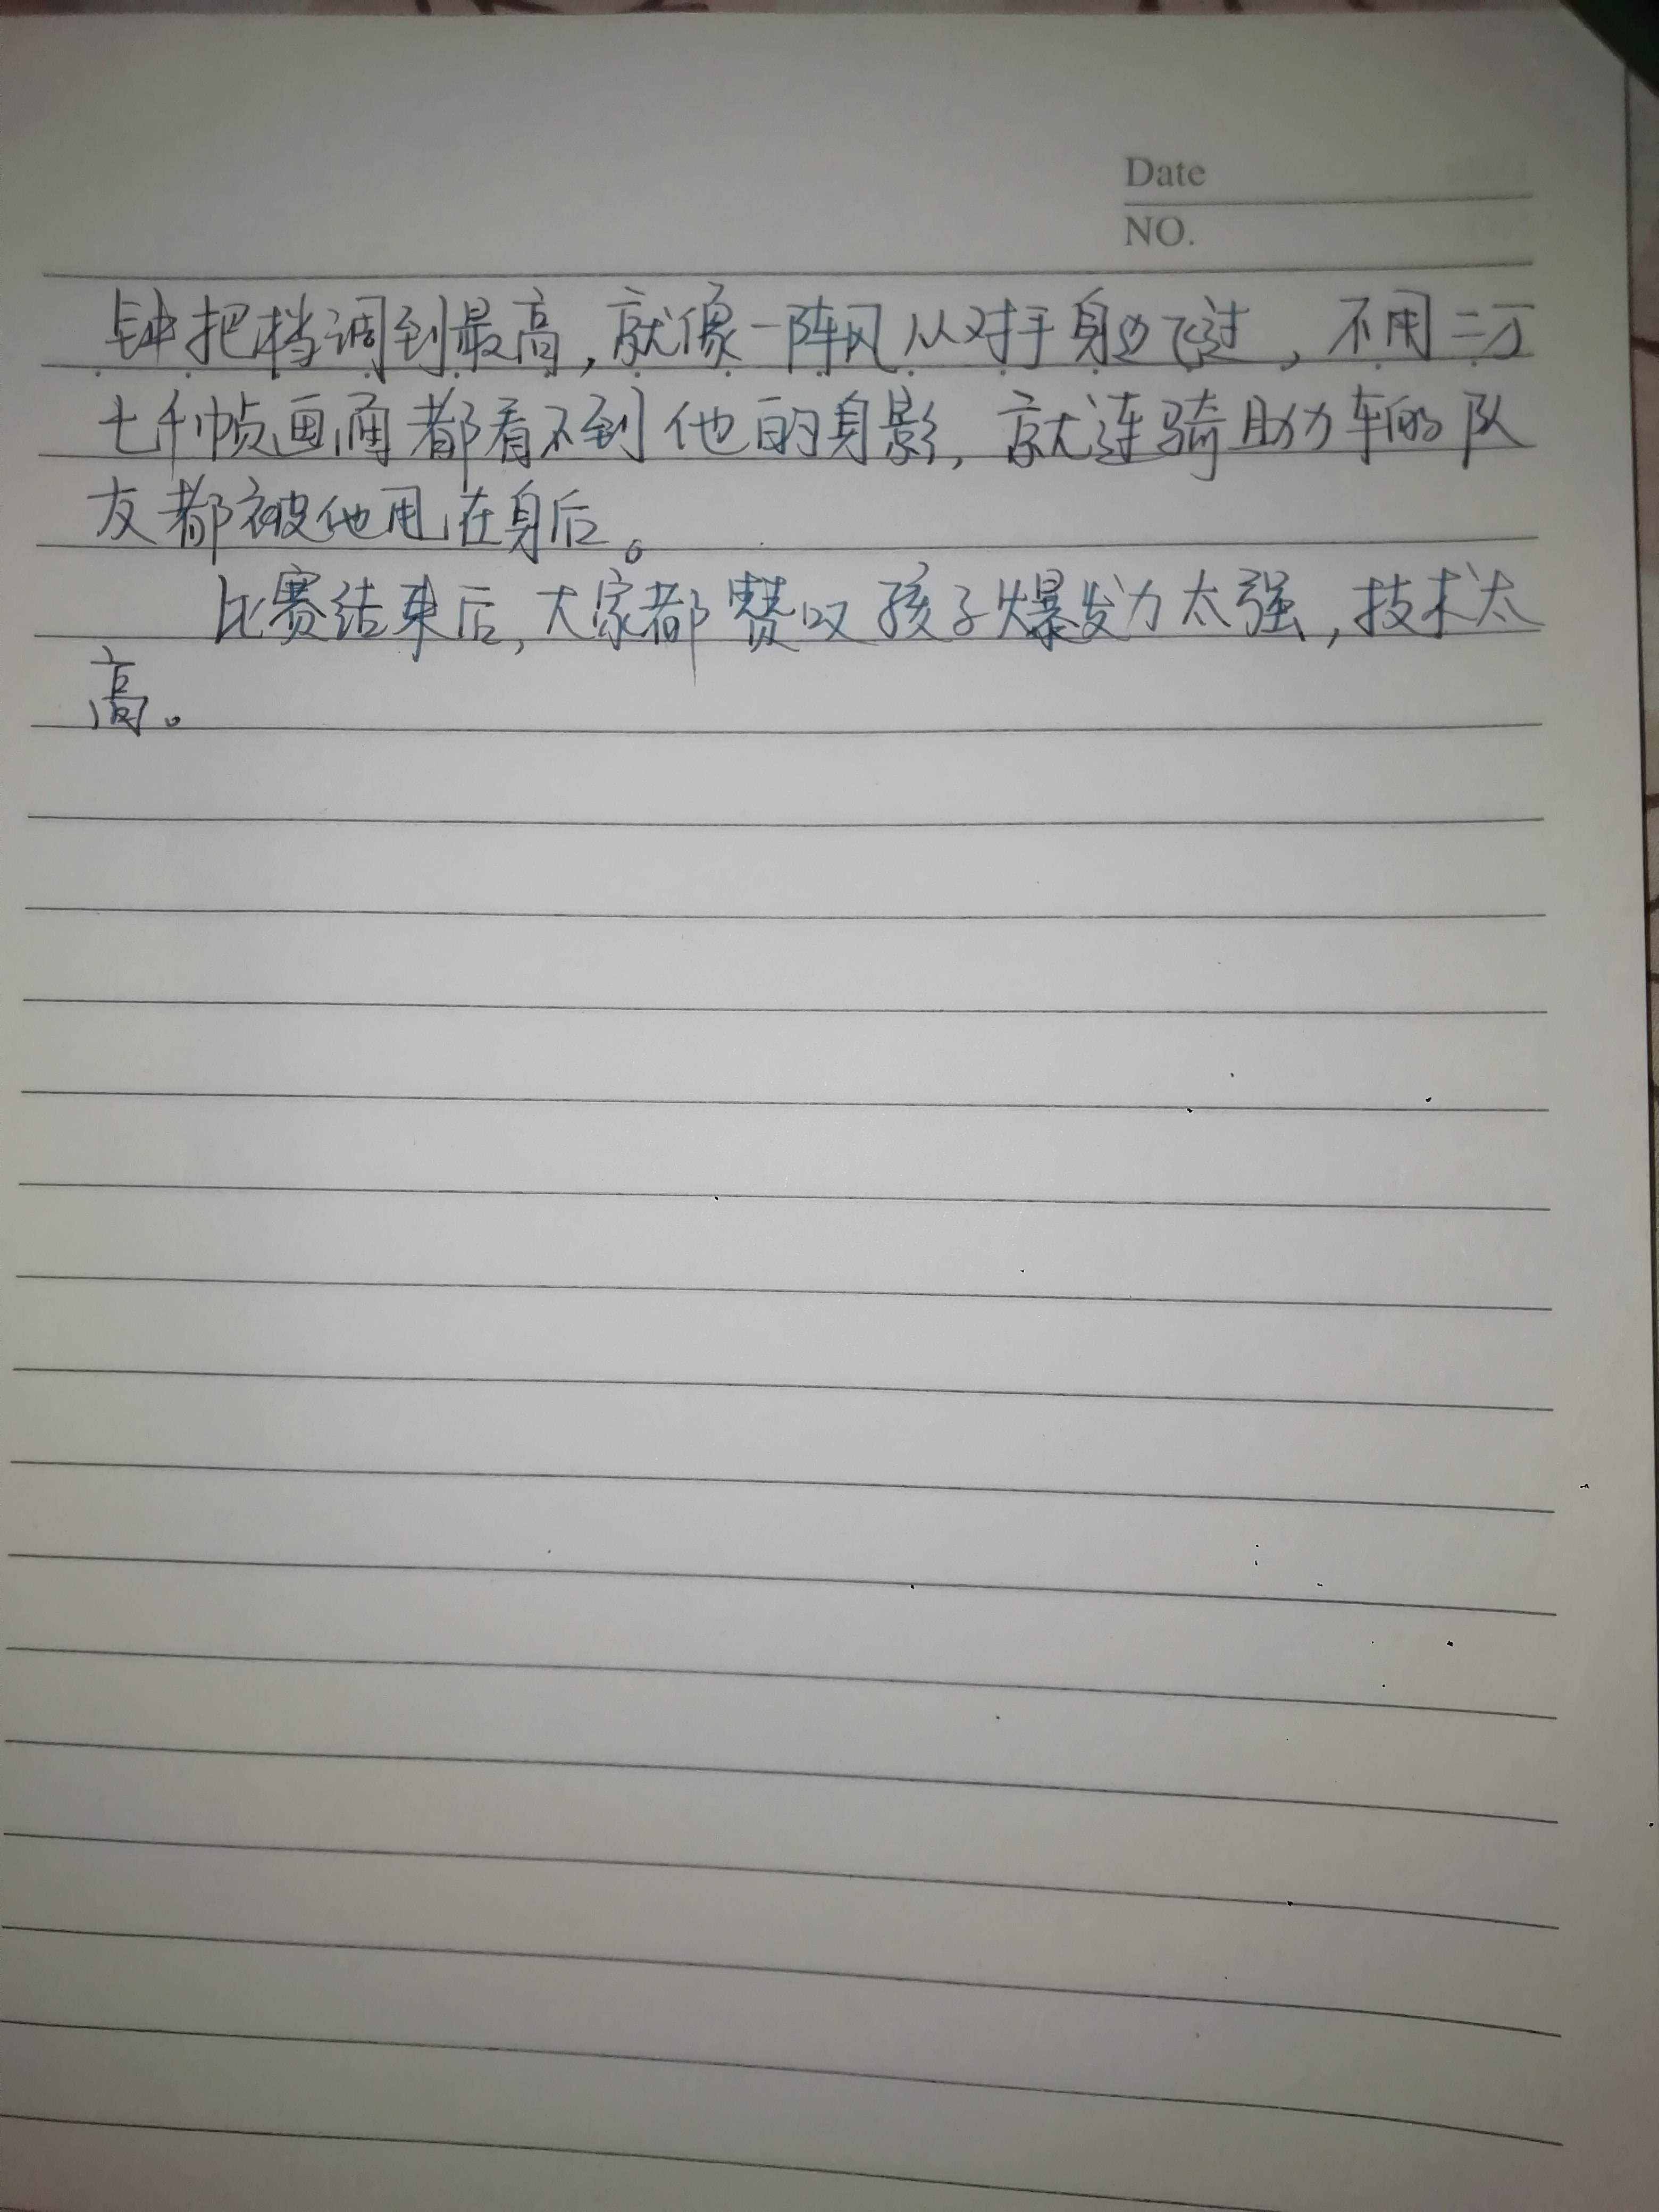 Date
NO.
钟把档调到最高，就像一阵风从对手身边飞过，不用二万
七千帧画面都看不到他的身影，就连骑助力车的队
友都被他甩在身后。
比赛结束后，大家都赞叹孩子爆发力太强，技术太
高。